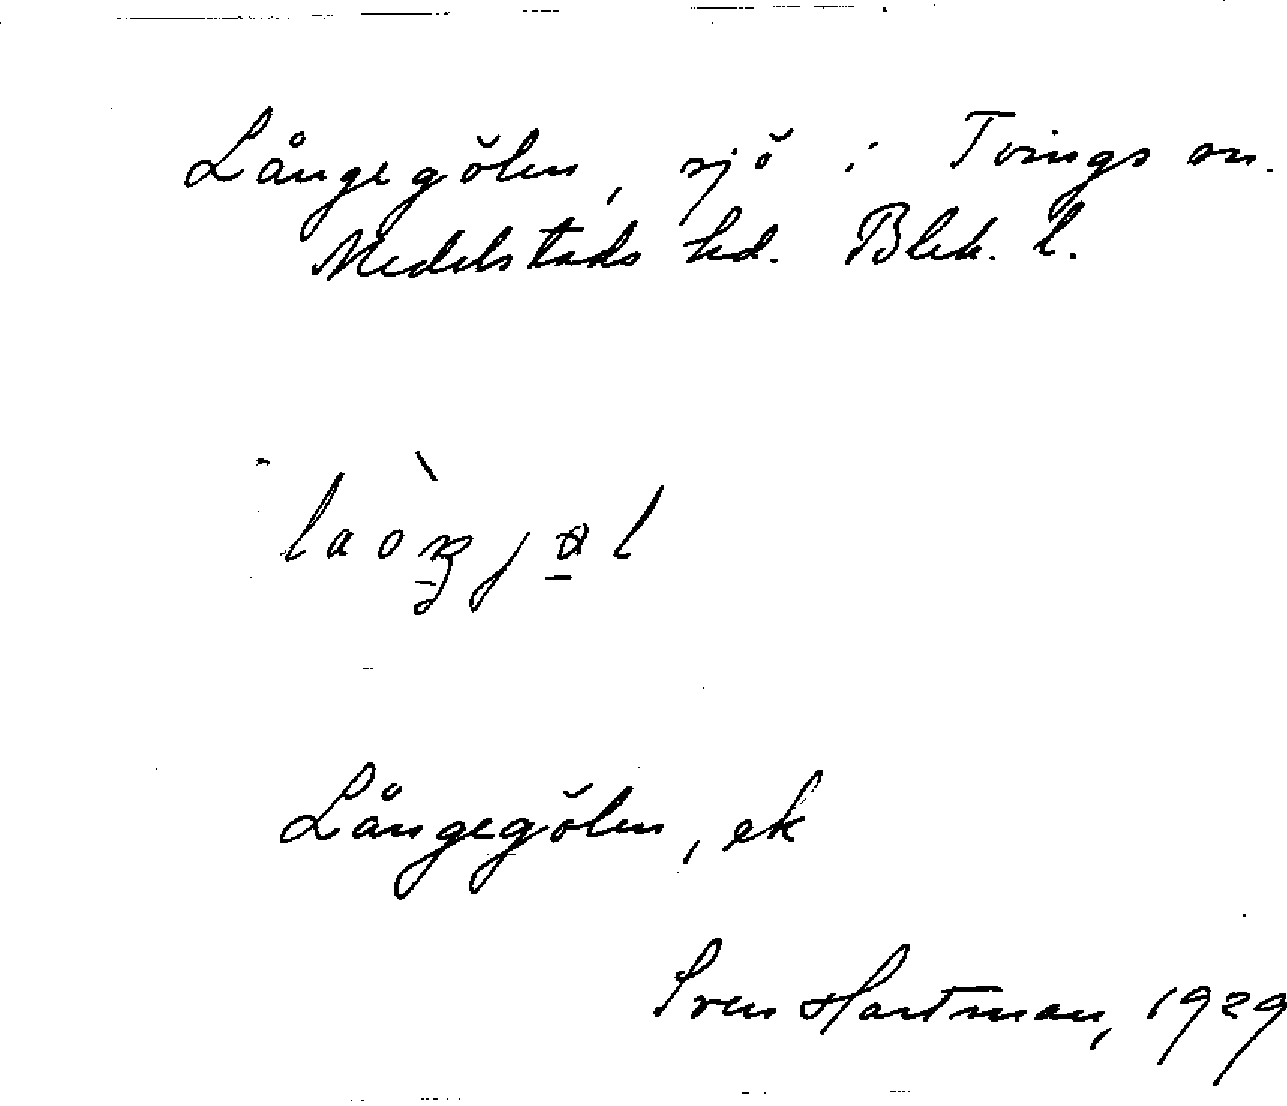 Långegölen, sjö i Tvings sn.
Medelstads hd. Blek. l.
Långegölen, ek
Sven Hartman, 1929